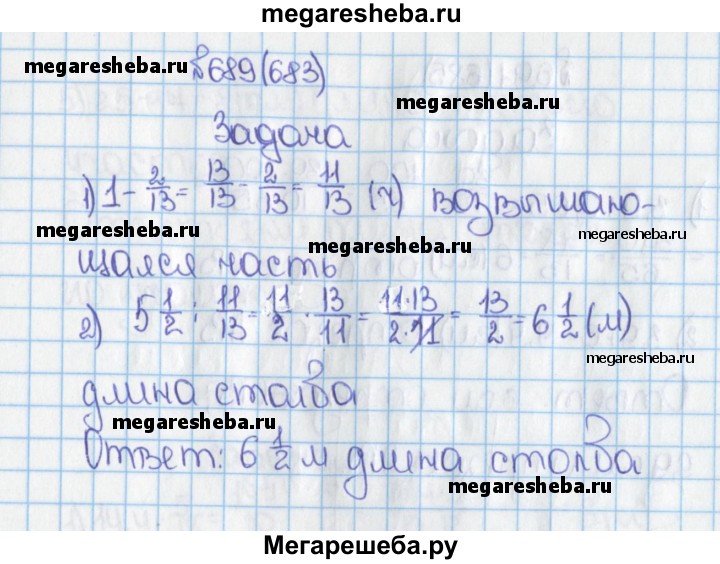 megaresheba.ru
megaresheba.ru №689(683)
megaresheba.ru
Задача
1) 1 - 2/13 = 13/13 - 2/13 = 11/13 (ч) возвышаю-
megaresheba.ru megaresheba.ru megaresheba.ru
щаяся часть
2) 5 1/2 : 11/13 = 11/2 · 13/11 = 11·13/2·11 = 13/2 = 6 1/2 (м)
megaresheba.ru
длина столба
megaresheba.ru
Ответ: 6 1/2 м длина столба
megaresheba.ru
Мегарешеба.ру